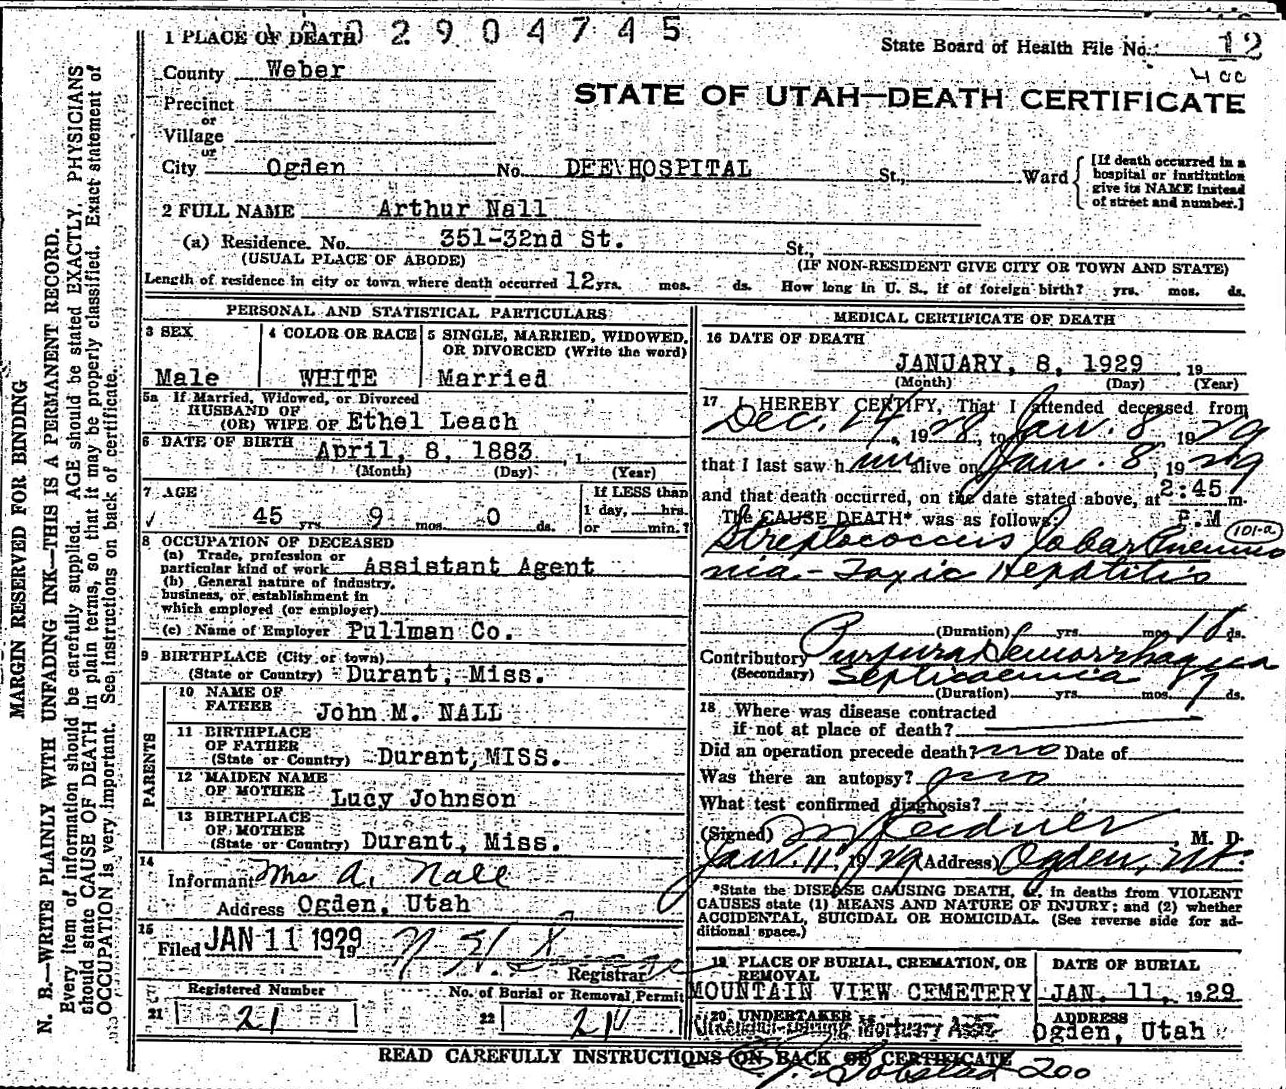 1 PLACE OF DEATH 1002904745
State Board of Health File No. 12
400
County Weber
STATE OF UTAH—DEATH CERTIFICATE
Precinct
or
Village
or
City Ogden No. DEE HOSPITAL St., Ward
[If death occurred in a
hospital or institution
give its NAME instead
of street and number.]
2 FULL NAME Arthur Nall
(a) Residence. No. 351-32nd St. St.,
(USUAL PLACE OF ABODE) (IF NON-RESIDENT GIVE CITY OR TOWN AND STATE)
Length of residence in city or town where death occurred 12 yrs. mos. ds. How long in U. S., if of foreign birth? yrs. mos. ds.
PERSONAL AND STATISTICAL PARTICULARS
3 SEX
Male
4 COLOR OR RACE
WHITE
5 SINGLE, MARRIED, WIDOWED,
OR DIVORCED (Write the word)
Married
5a If Married, Widowed, or Divorced
HUSBAND OF
(OR) WIFE OF Ethel Leach
6 DATE OF BIRTH
April, 8, 1883, 1
(Month) (Day) (Year)
7 AGE
45 yrs. 9 mos. 0 ds.
If LESS than
1 day, hrs.
or min.?
8 OCCUPATION OF DECEASED
(a) Trade, profession or
particular kind of work Assistant Agent
(b) General nature of industry,
business, or establishment in
which employed (or employer)
(c) Name of Employer Pullman Co.
9 BIRTHPLACE (City or town)
(State or Country) Durant, Miss.
PARENTS
10 NAME OF
FATHER John M. NALL
11 BIRTHPLACE
OF FATHER
(State or Country) Durant, MISS.
12 MAIDEN NAME
OF MOTHER Lucy Johnson
13 BIRTHPLACE
OF MOTHER
(State or Country) Durant, Miss.
14
Informant Mrs A. Nall
Address Ogden, Utah
15
Filed JAN 11 1929 19
Registrar
Registered Number
21 21
No. of Burial or Removal Permit
22 24
MEDICAL CERTIFICATE OF DEATH
16 DATE OF DEATH
JANUARY, 8, 1929, 19
(Month) (Day) (Year)
17 I HEREBY CERTIFY, That I attended deceased from
Dec. 24, 1928, to Jan. 8 1929
that I last saw him alive on Jan. 8, 1929
and that death occurred, on the date stated above, at 2:45 m.
P.M
The CAUSE DEATH* was as follows:
101-a
Streptococcus lobar Pneumo
nia - Toxic Hepatitis
(Duration) yrs. mos. ds.
Contributory Purpura Hemorrhagica
(Secondary) Septicaemia
(Duration) yrs. mos. ds.
18 Where was disease contracted
if not at place of death?
Did an operation precede death? no Date of
Was there an autopsy? no
What test confirmed diagnosis?
(Signed) M. D.
Jan. 11, 1929 (Address) Ogden, Ut.
*State the DISEASE CAUSING DEATH, or, in deaths from VIOLENT
CAUSES state (1) MEANS AND NATURE OF INJURY; and (2) whether
ACCIDENTAL, SUICIDAL OR HOMICIDAL. (See reverse side for ad-
ditional space.)
19 PLACE OF BURIAL, CREMATION, OR
REMOVAL
MOUNTAIN VIEW CEMETERY
DATE OF BURIAL
JAN. 11, 1929
20 UNDERTAKER
Mortuary Assn
ADDRESS
Ogden, Utah
READ CAREFULLY INSTRUCTIONS ON BACK OF CERTIFICATE
200
MARGIN RESERVED FOR BINDING
N. B.—WRITE PLAINLY WITH UNFADING INK—THIS IS A PERMANENT RECORD.
Every item of information should be carefully supplied. AGE should be stated EXACTLY. PHYSICIANS
should state CAUSE OF DEATH in plain terms, so that it may be properly classified. Exact statement of
OCCUPATION is very important. See instructions on back of certificate.